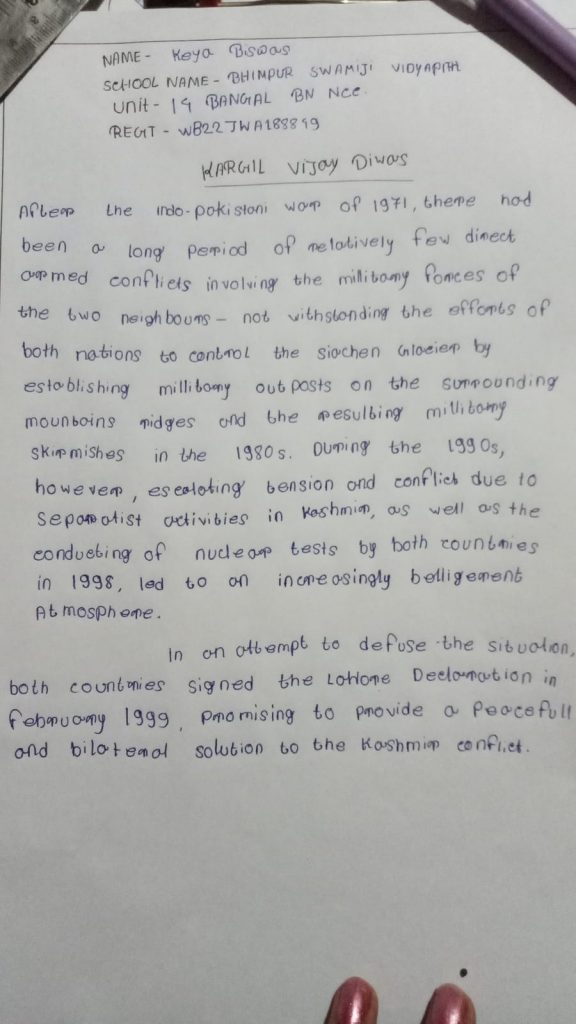 NAME - Keya Biswas
SCHOOL NAME - BHIMPUR SWAMIJI VIDYAPITH
Unit - 14 BANGAL BN NCC.
REGT - WB22JWA188849
KARGIL Vijay Diwas
After the indo-pakistani war of 1971, there had
been a long period of relatively few direct
armed conflicts involving the millitary forces of
the two neighbours - not withstanding the efforts of
both nations to control the siachen Glacier by
establishing millitary outposts on the surrounding
mountains ridges and the resulting millitary
skirmishes in the 1980s. During the 1990s,
however, escalating tension and conflict due to
separatist activities in Kashmir, as well as the
conducting of nuclear tests by both countries
in 1998, led to an increasingly belligerent
Atmosphere.
In an attempt to defuse the situation,
both countries signed the Lahore Declaration in
February 1999, promising to provide a Peacefull
and bilateral solution to the Kashmir conflict.